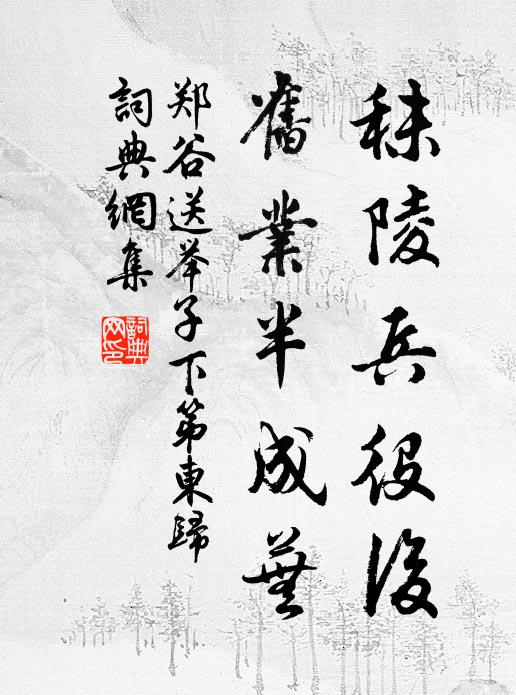 秣陵兵役後
舊業半成蕪
郑谷送举子下第東歸
詞典網集
詞典网印